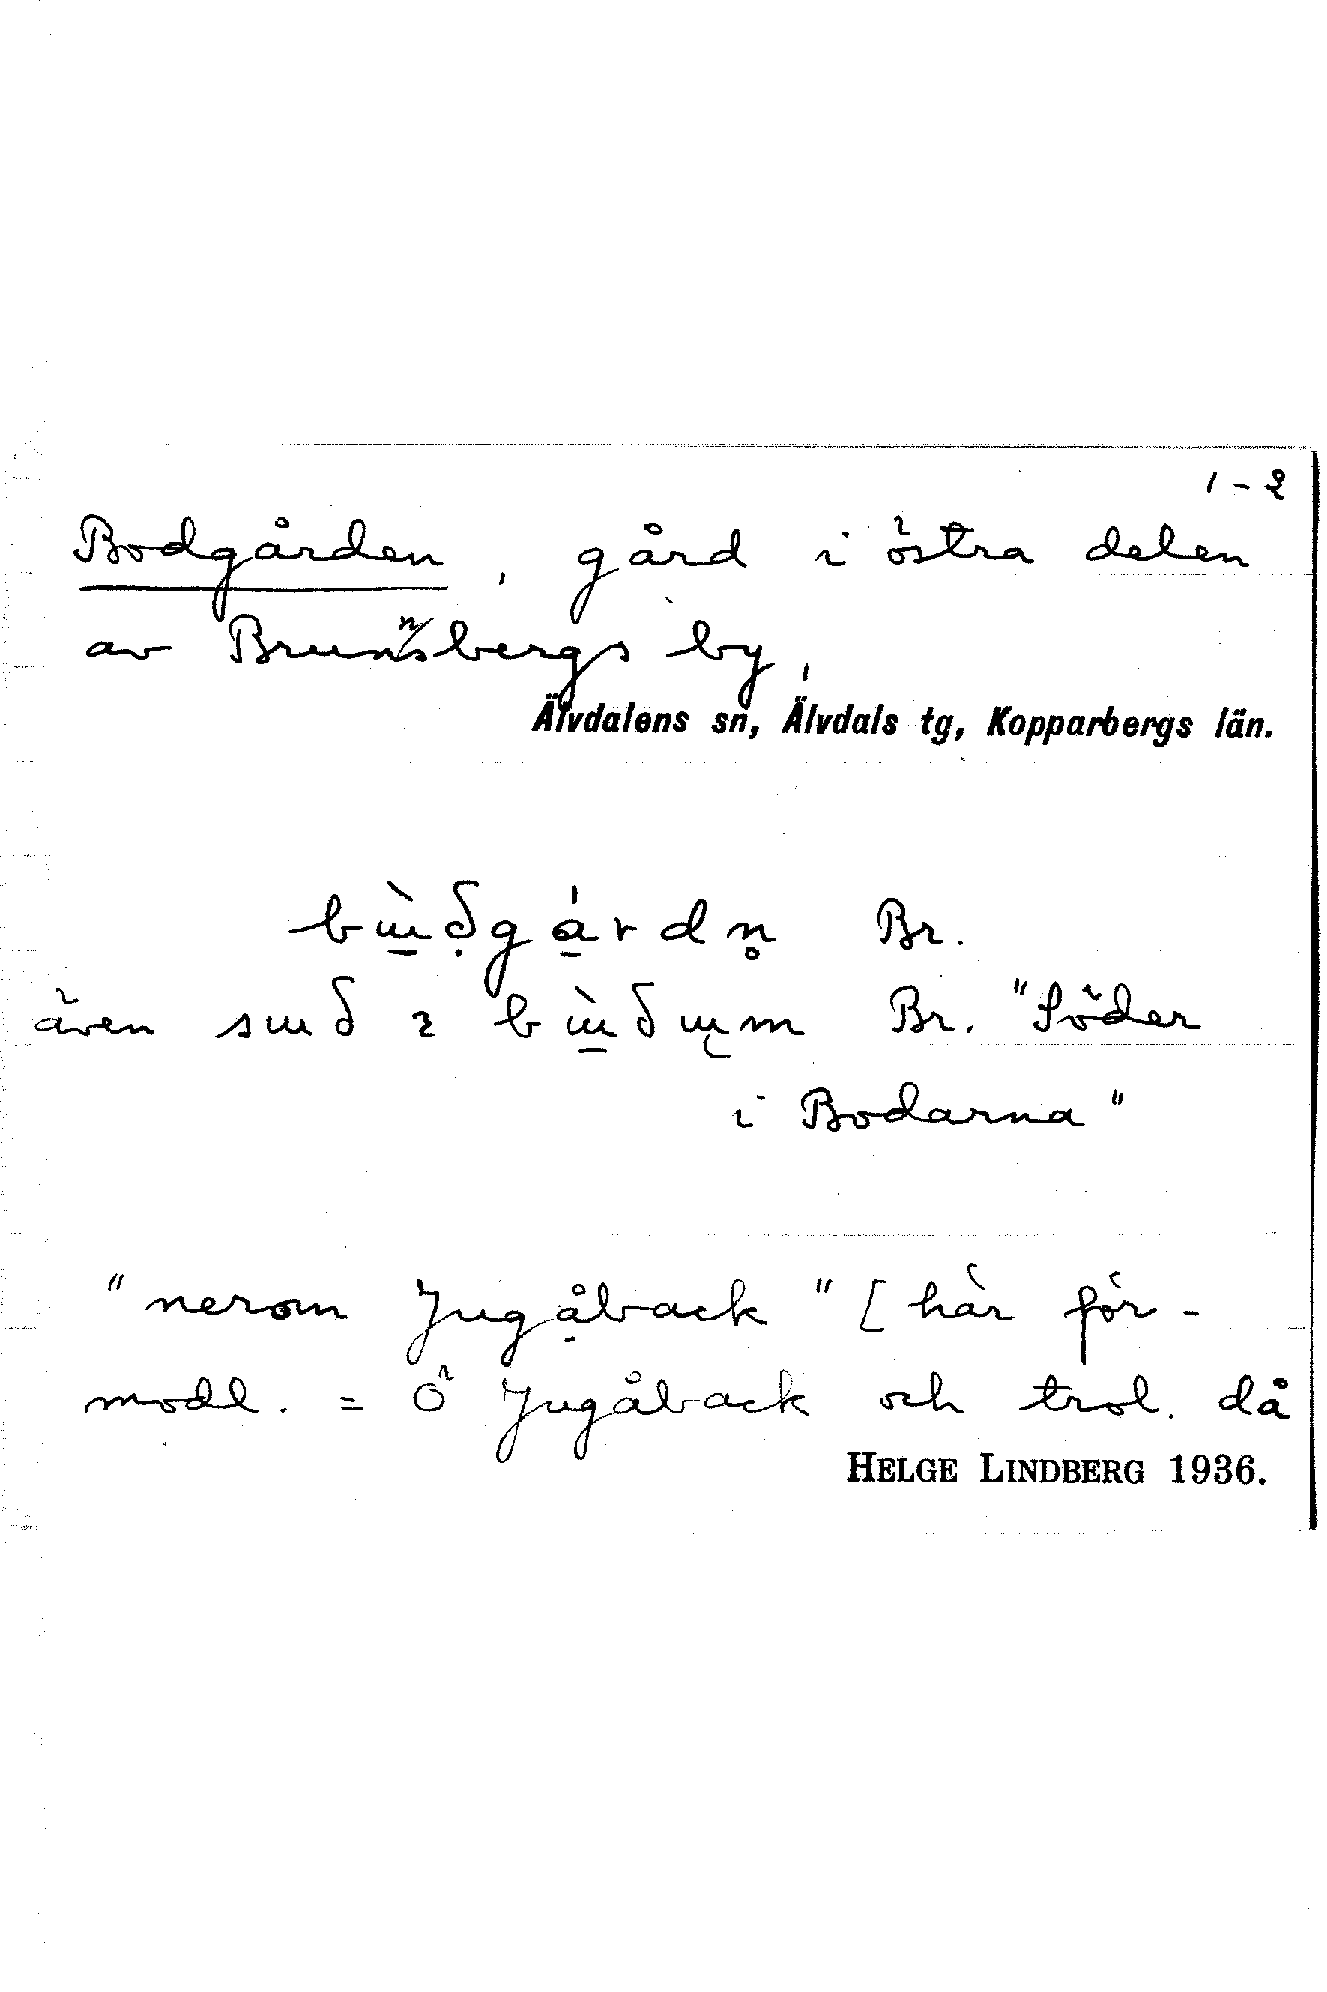 1-2
Bodgården, gård i östra delen
av Brunnsbergs by,
Älvdalens sn, Älvdals tg, Kopparbergs län.
bɯ̀ðgárdn̥ Br.
även sɯð ɪ bɯ̀ðɯm Br. "Söder
i Bodarna"
"nerom Jugåback" [här för-
modl. = Ö Jugåback och trol. då
HELGE LINDBERG 1936.